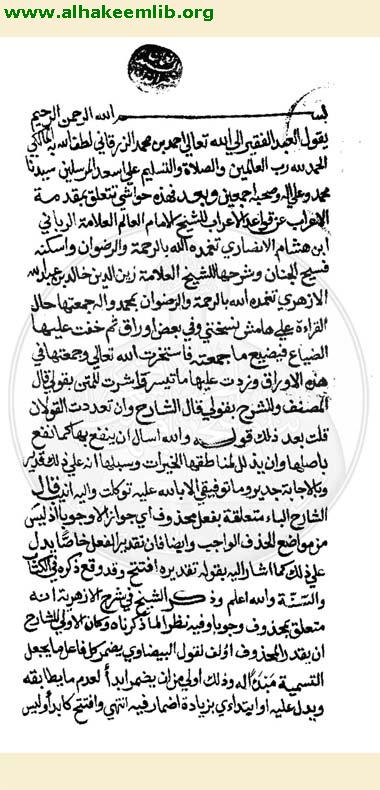 www.alhakeemlib.org
بسم الله الرحمن الرحيم
يقول العبد الفقير الى الله تعالى احمد بن محمد الزرقاني لطف الله به المالكي
الحمد لله رب العالمين والصلاة والتسليم على اسعد المرسلين سيدنا
محمد وعلى اله وصحبه اجمعين وبعد فهذه حواشي تتعلق بمقدمة
الاعراب عن قواعد الاعراب للشيخ الامام العالم العلامة الرباني
ابن هشام الانصاري تغمده الله بالرحمة والرضوان واسكنه
فسيح الجنان وشرحها للشيخ العلامة زين الدين خالد بن عبد الله
الازهري تغمده الله بالرحمة والرضوان بمحمد واله جمعتها حال
القراءة على هامش نسختي وفي بعض اوراق ثم خفت عليها
الضياع فيضيع ما جمعته فاستخرت الله تعالى وجمعتها في
هذه الاوراق وزدت عليها ما تيسر فاشرت للمتن بقولي قال
المصنف وللشرح بقولي قال الشارح وان تعددت القولان
قلت بعد ذلك قوله والله اسال ان ينفع بها كما نفع
باصلها وان يذلل لمناطقها الخيرات وسبيلها انه على ذلك قدير
وبالاجابة جدير وما توفيقي الا بالله عليه توكلت واليه انيب قال
الشارح الباء متعلقة بفعل محذوف اي جوازا لا وجوبا اذ ليس
من مواضع الحذف الواجب وايضا فان تقدير الفعل خاصا يدل
على ذلك كما اشار اليه بقوله تقديره افتتح وقد وقع ذكره في الكتاب
والسنة والله اعلم وذكر الشيخ في شرح الازهرية انه
متعلق بمحذوف وجوبا وفيه نظر لما ذكرناه وكان الاولى للشارح
ان يقدر المحذوف اؤلف لقول البيضاوي يضمر كل فاعل ما يجعل
التسمية مبدأ له وذلك اولى من ان يضمر ابدأ لعدم ما يطابقه
ويدل عليه او ابتداءي بزيادة اضمار فيه انتهى وافتتح كابدأ وليس